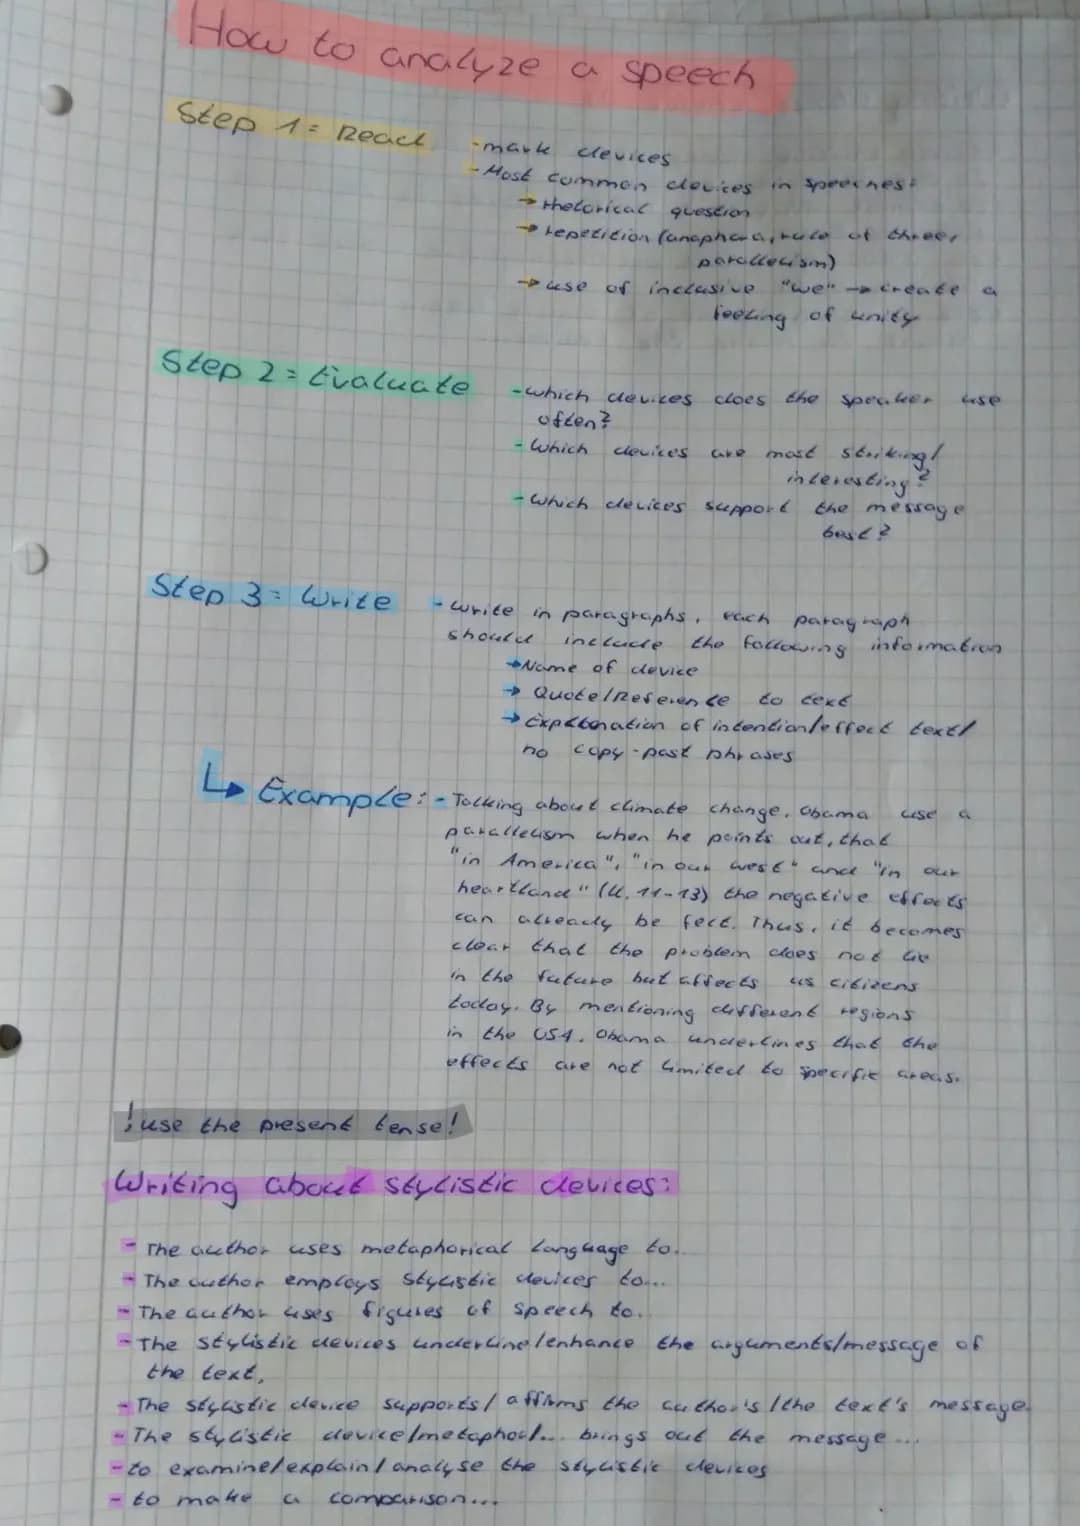 How to analyze a speech
Step 1 = Read
-mark devices
-Most common devices in speeches:
→ rhetorical question
→ repetition (anaphora, rule of three,
parallelism)
→ use of inclusive "we" → create a
feeling of unity
Step 2 = Evaluate
-which devices does the speaker use
often?
-Which devices are most striking/
interesting?
-Which devices support the message
best?
Step 3 = Write
-write in paragraphs, each paragraph
should include the following information
→Name of device
→ Quote/Reference to text
→ Explanation of intention/effect text/
no copy-past phrases
↳ Example:
- Talking about climate change, Obama use a
parallelism when he points out, that
"in America", "in our west" and "in our
heartland" (ll. 11-13) the negative effects
can already be felt. Thus, it becomes
clear that the problem does not lie
in the future but affects us citizens
today. By mentioning different regions
in the USA, Obama underlines that the
effects are not limited to specific areas.
! use the present tense!
Writing about stylistic devices:
- The author uses metaphorical language to...
- The author employs stylistic devices to...
- The author uses figures of speech to...
- The stylistic devices underline/enhance the arguments/message of
the text.
- The stylistic device supports/affirms the author's/the text's message.
- The stylistic device/metaphor/... brings out the message ...
- to examine/explain/analyse the stylistic devices
- to make a comparison...